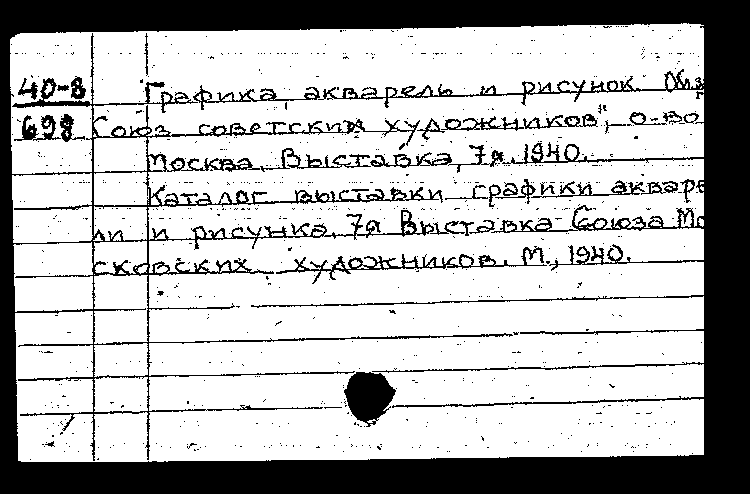 40-8 Графика, акварель и рисунок.
698 Союз советских художников", о-во
Москва. Выставка, 7я. 1940.
Каталог выставки графики акваре
ли и рисунка. 7я Выставка Союза Мо
сковских художников. М., 1940.